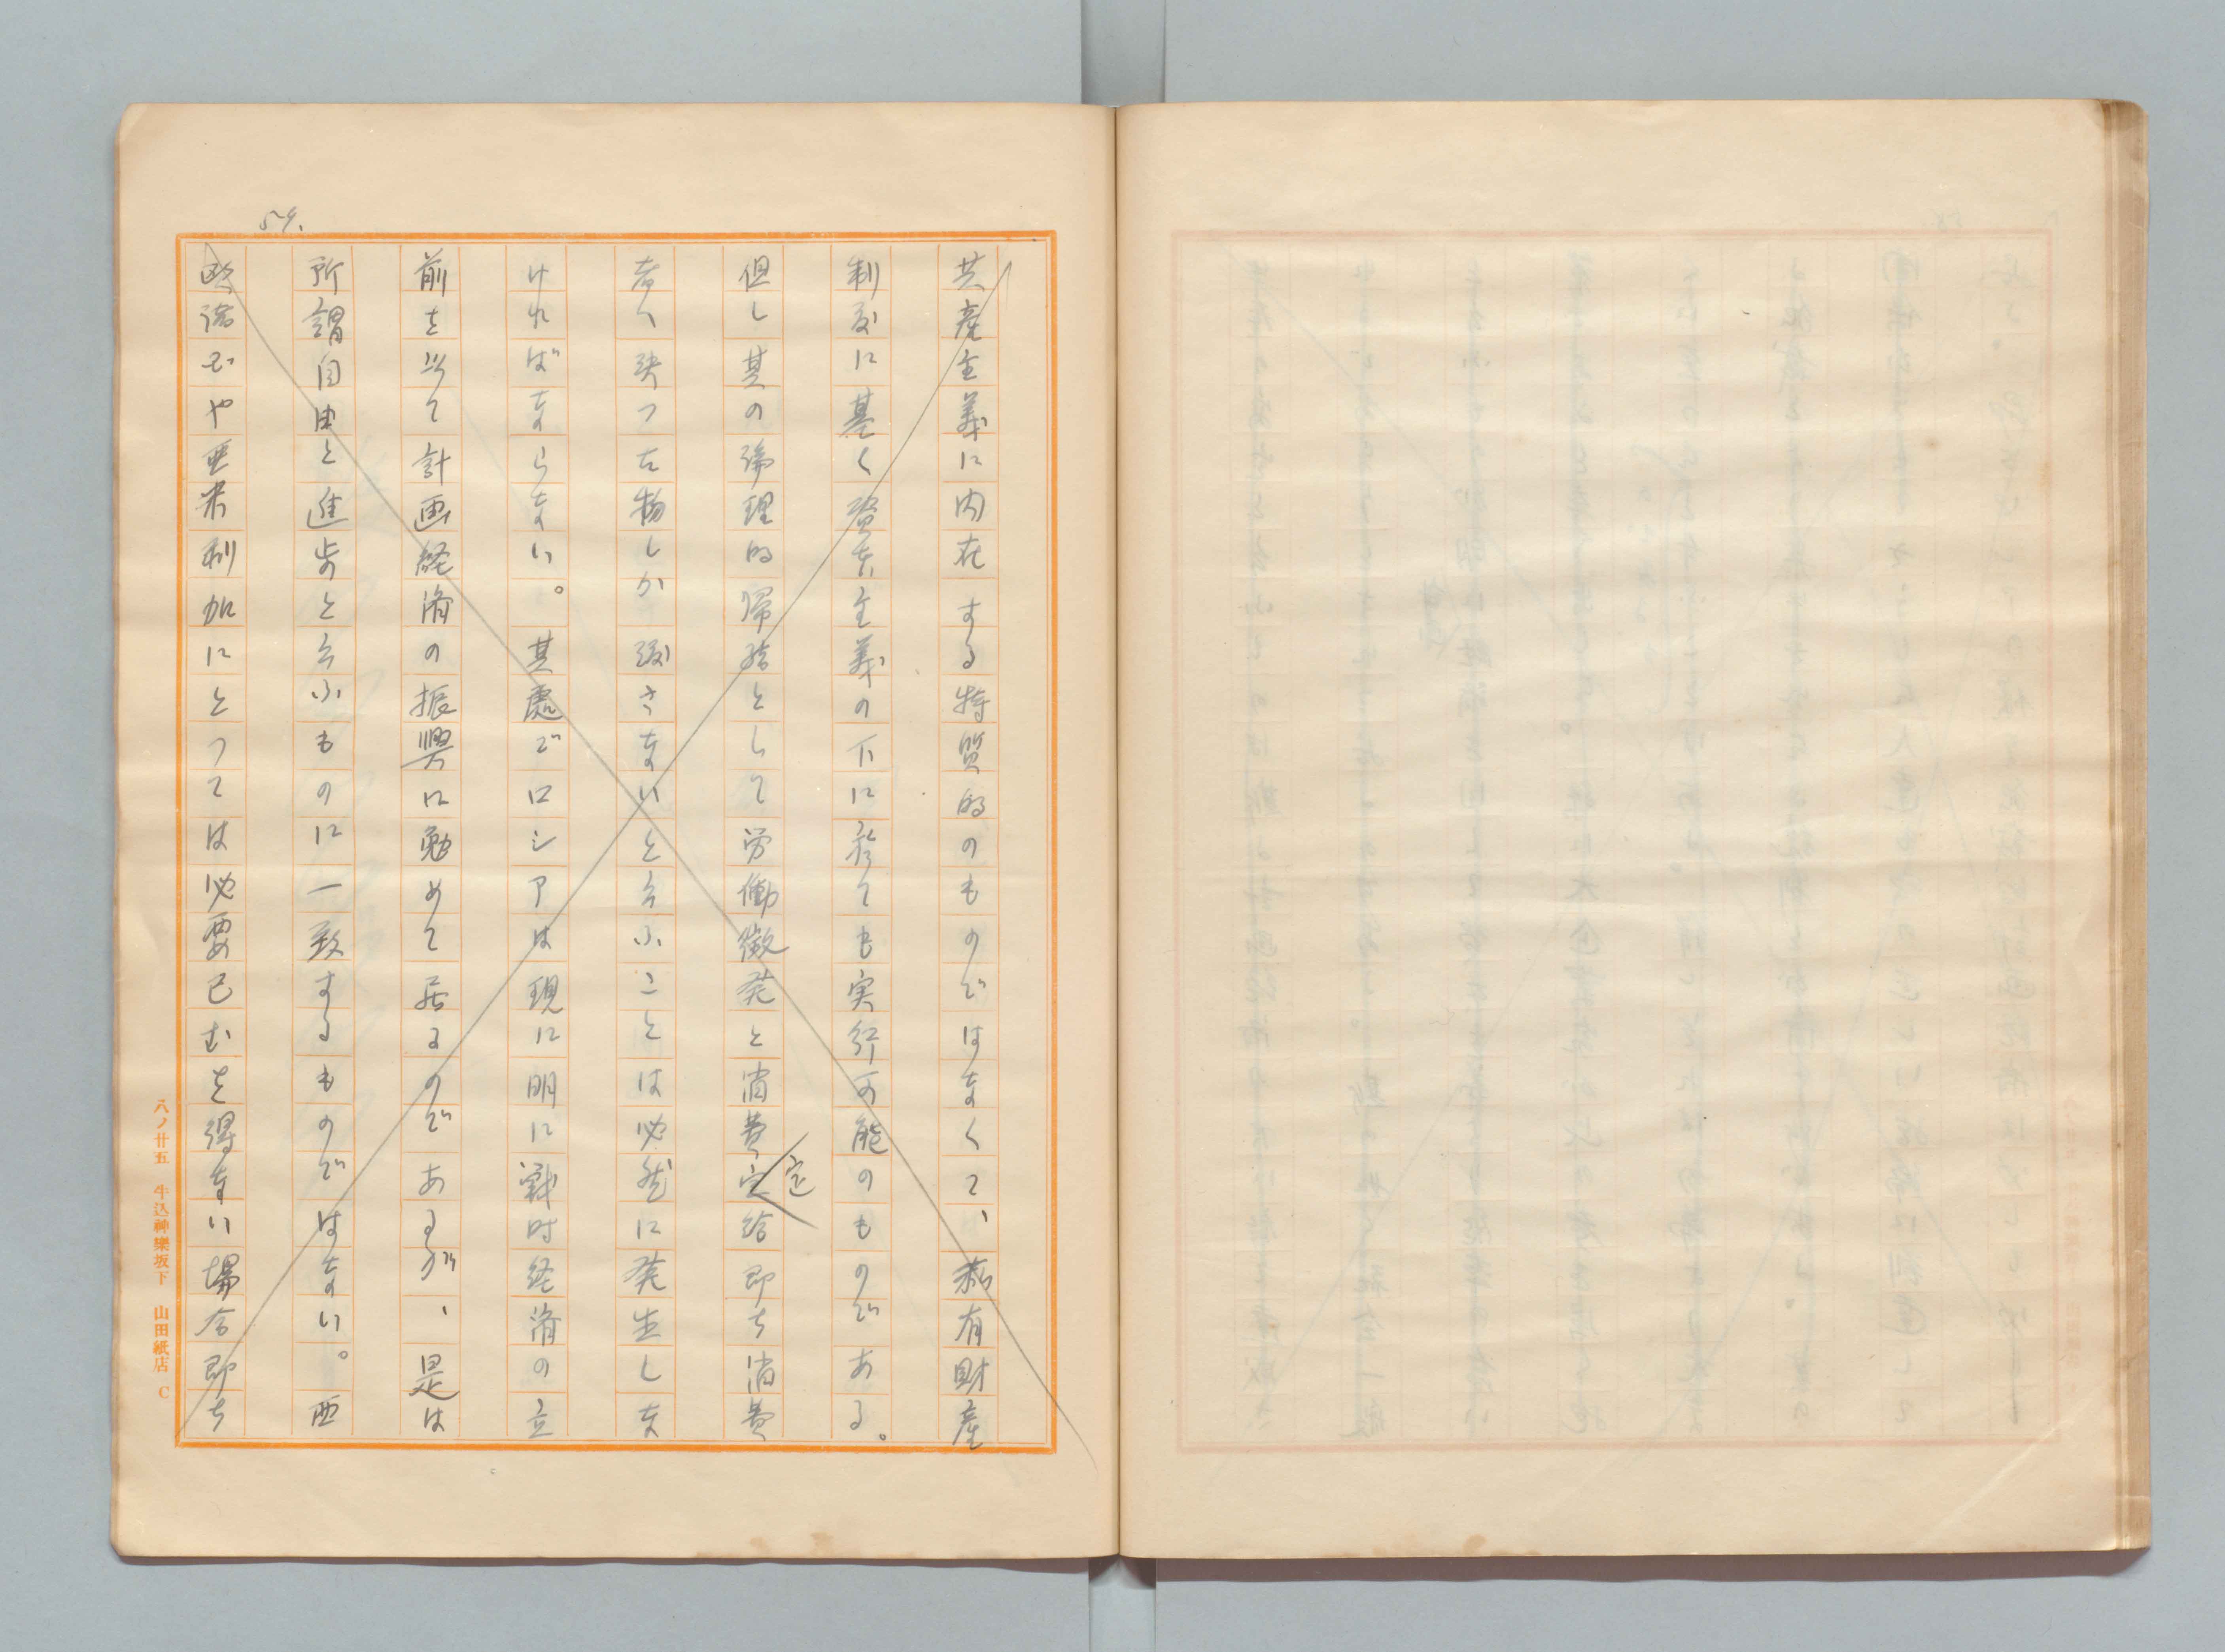 59.
共産主義に内在する特質的のものではなくて、私有財産
制度に基く資本主義の下に於ても実行可能のものである。
但し其の論理的帰結として労働徴発と消費定給即ち消費
定
者へ決った物しか渡さないと云ふことは必然に発生しな
ければならない。其處でロシアは現に明に戦時経済の立
前を以て計画経済の振興に勉めて居るのであるが、是は
所謂自由と進歩と云ふものに一致するものではない。西
欧諸己や亜米利加にとっては必要已むを得ない場合即ち
八ノ廿五 牛込神樂坂下 山田紙店 C